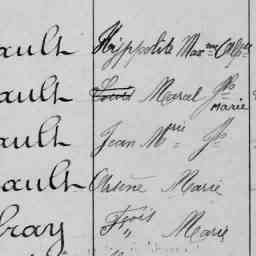 ault Hyppolite Max
ault Louis Marcel Jph Marie
ault Jean Mrie Jh
ault Arsène Marie
Gray Frois Marie